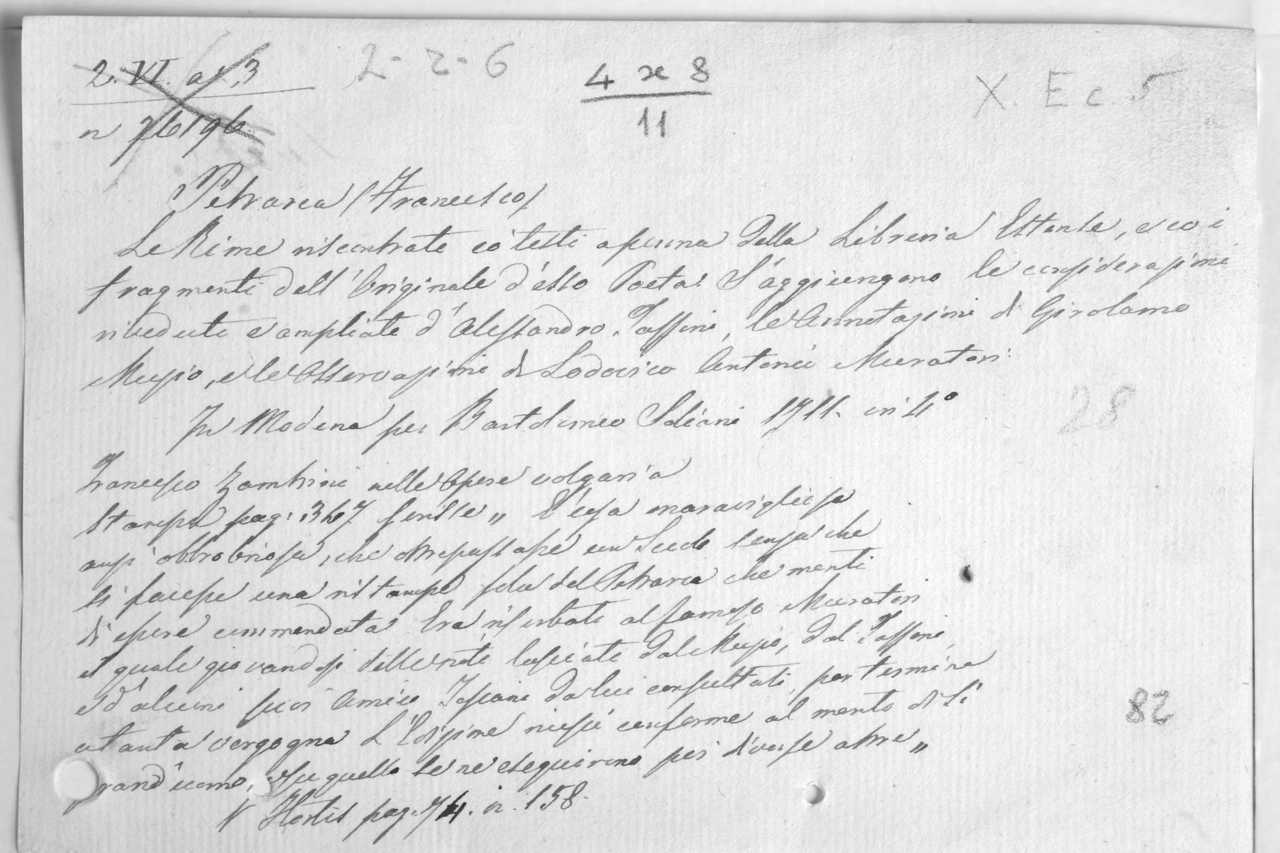 2. VI. a. 3
2-2-6
4 x 8
11
X. E c. 5
n 76196
Petrarca (Francesco)
Le Rime riscontrate co' testi a penna della Libreria Estense, e co i
fragmenti dell' Originale d'esso Poeta: S'aggiungono le considerazioni
rivedute e ampliate d'Alessandro Tassoni, le Annotazioni di Girolamo
Muzio, e le Osservazioni di Lodovico Antonio Muratori
In Modena per Bartolomeo Soliani 1711. in 4º
28
Francesco Zambrini nelle Opere volgari a
stampa pag: 367 scrisse „ È cosa maravigliosa
anzi obbrobriosa, che oltrepassasse un Secolo senza che
si facesse una ristampa sola del Petrarca che meriti
di essere commendata. Era riserbato al famoso Muratori
il quale giovandosi delle note lasciate dal Muzio, dal Tassoni,
e d'alcuni suoi Amici Toscani da lui consultati, por termine
a tanta vergogna L'Edizione riuscì conforme al merito di sì
82
grand'uomo, e su quella se ne eseguirono poi diverse altre „
V Hortis pag. 74. n. 158.